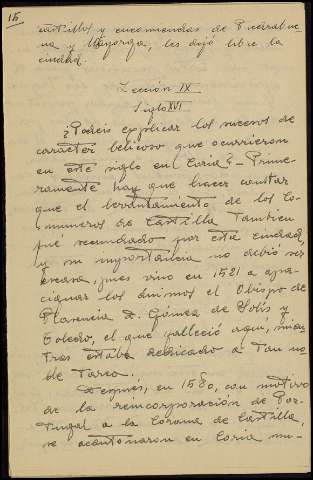 15
castillos y encomiendas de Piedrabue-
na y Mayorga, les dejó libre la
ciudad.
Lección IX
Siglo XVI
¿Podeis explicar los sucesos de
caracter belicoso que ocurrieron
en este siglo en Coria? - Prime-
ramente hay que hacer constar
que el levantamiento de los Co-
muneros de Castilla tambien
fué secundado por esta ciudad,
y su importancia no debió ser
escasa, pues vino en 1521 a apa-
ciguar los ánimos el Obispo de
Plasencia D. Gómez de Solís y
Toledo, el que falleció aquí, mien
tras estaba dedicado a tan no-
ble tarea.
Después, en 1580, con motivo
de la reincorporación de Por-
tugal a la Corona de Castilla,
se acantonaron en Coria nu-